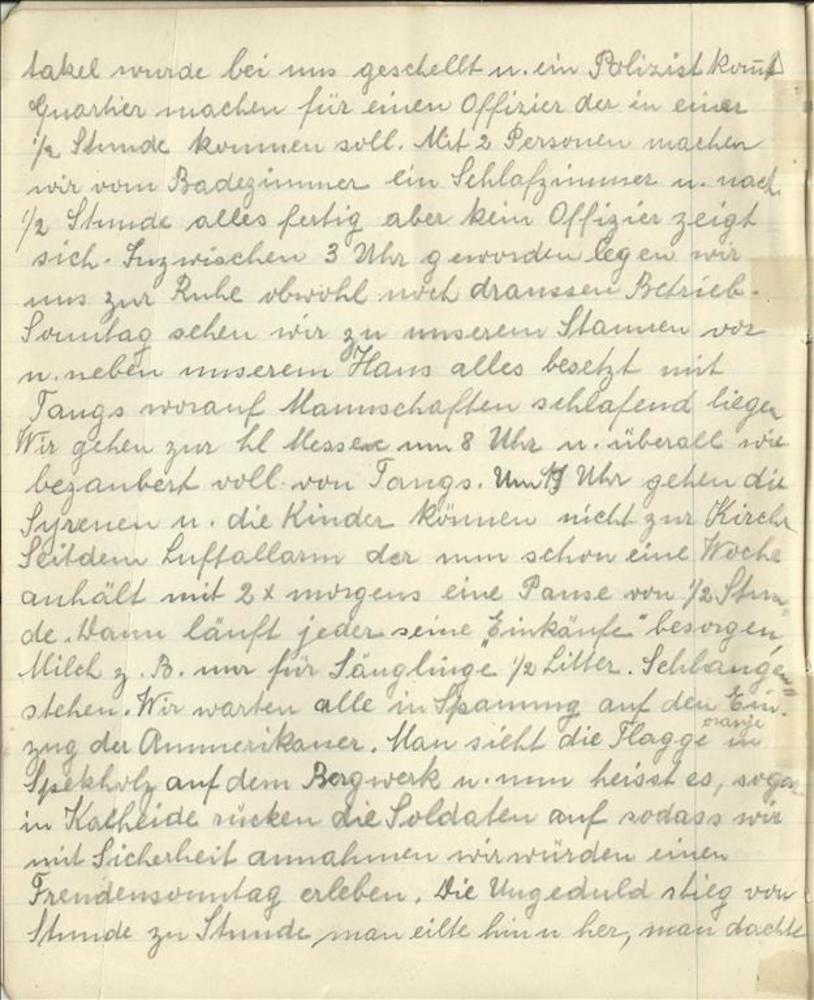 takel wurde bei uns geschellt u. ein Polizist kom̄t
Quartier machen für einen Offizier der in einer
1/2 Stunde kommen soll. Mit 2 Personen machen
wir vom Badezimmer ein Schlafzimmer u. nach
1/2 Stunde alles fertig aber kein Offizier zeigt
sich. Inzwischen 3 Uhr geworden legen wir
uns zur Ruhe obwohl noch draussen Betrieb.
Sonntag sehen wir zu unserem Staunen vor
u. neben unserem Haus alles besetzt mit
Tangs worauf Mannschaften schlafend liegen
Wir gehen zur hl Messe um 8 Uhr u. überall wie
bezaubert voll von Tangs. Um Uhr gehen die
Syrenen u. die Kinder können nicht zur Kirche
Seitdem Luftallarm der nun schon eine Woche
anhält mit 2 x morgens eine Pause von 1/2 Stun=
de. Dann läuft jeder seine „Einkäufe" besorgen,
Milch z. B. nur für Säuglinge 1/2 Litter. Schlangen=
stehen. Wir warten alle in Spannung auf den Ein=
zug der Ammerikaner. Man sieht die Flagge oranje in
Spekholz auf dem Bergwerk u. nun heisst es, sogar
in Kalheide rücken die Soldaten auf sodass wir
mit Sicherheit annahmen wir würden einen
Freudensonntag erleben. Die Ungeduld stieg von
Stunde zu Stunde man eilte hin u her, man dachte